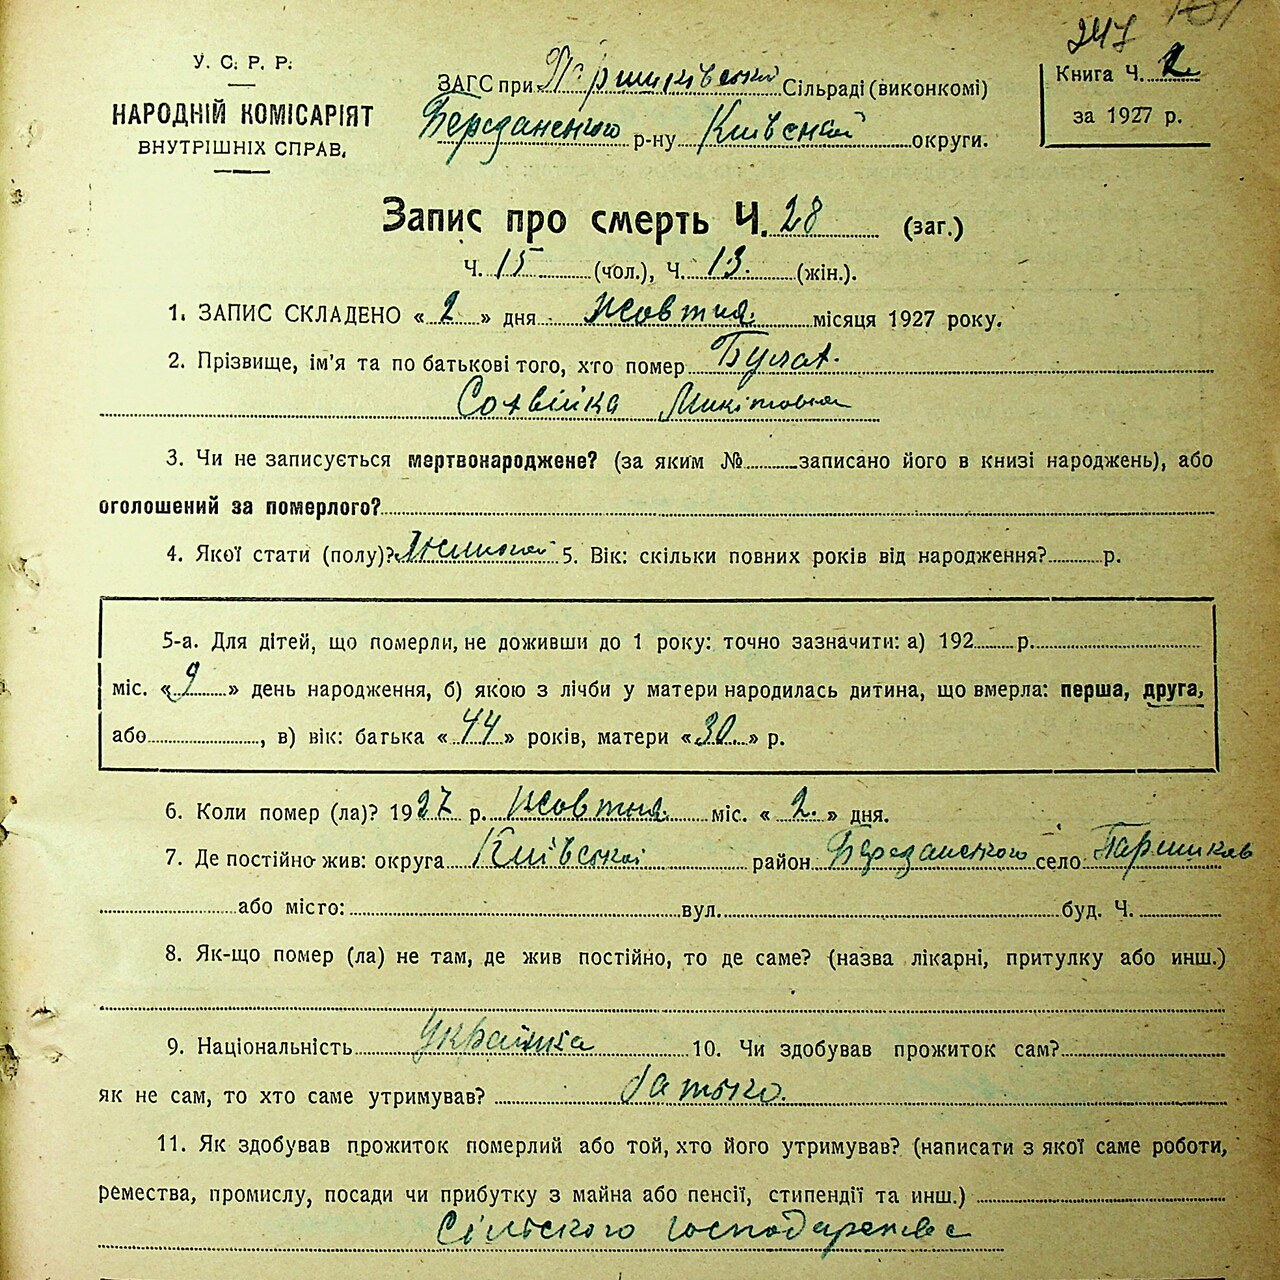 247
У. С. Р. Р.
НАРОДНІЙ КОМІСАРІЯТ
ВНУТРІШНІХ СПРАВ.
ЗАГС при Паришківській Сільраді (виконкомі)
Березанського р-ну Київської округи.
Книга Ч. 2
за 1927 р.
Запис про смерть Ч. 28 (заг.)
Ч. 15 (чол.), Ч. 13. (жін.).
1. ЗАПИС СКЛАДЕНО « 2 » дня Жовтня місяця 1927 року.
2. Прізвище, ім'я та по батькові того, хто помер Булат.
Микітовна
3. Чи не записується мертвонароджене? (за яким № записано його в книзі народжень), або
оголошений за померлого?
4. Якої стати (полу)? Жіночої 5. Вік: скільки повних років від народження? р.
5-а. Для дітей, що померли, не доживши до 1 року: точно зазначити: а) 192 р.
міс. « 9 » день народження, б) якою з лічби у матери народилась дитина, що вмерла: перша, друга,
або , в) вік: батька « 44 » років, матери « 30. » р.
6. Коли помер (ла)? 1927 р. Жовтня міс. « 2. » дня.
7. Де постійно жив: округа Київської район Березанського село Паришков
або місто: вул. буд. Ч.
8. Як-що помер (ла) не там, де жив постійно, то де саме? (назва лікарні, притулку або инш.)
9. Національність Українка 10. Чи здобував прожиток сам?
як не сам, то хто саме утримував? батько.
11. Як здобував прожиток померлий або той, хто його утримував? (написати з якої саме роботи,
ремества, промислу, посади чи прибутку з майна або пенсії, стипендії та инш.)
Сільского господарства